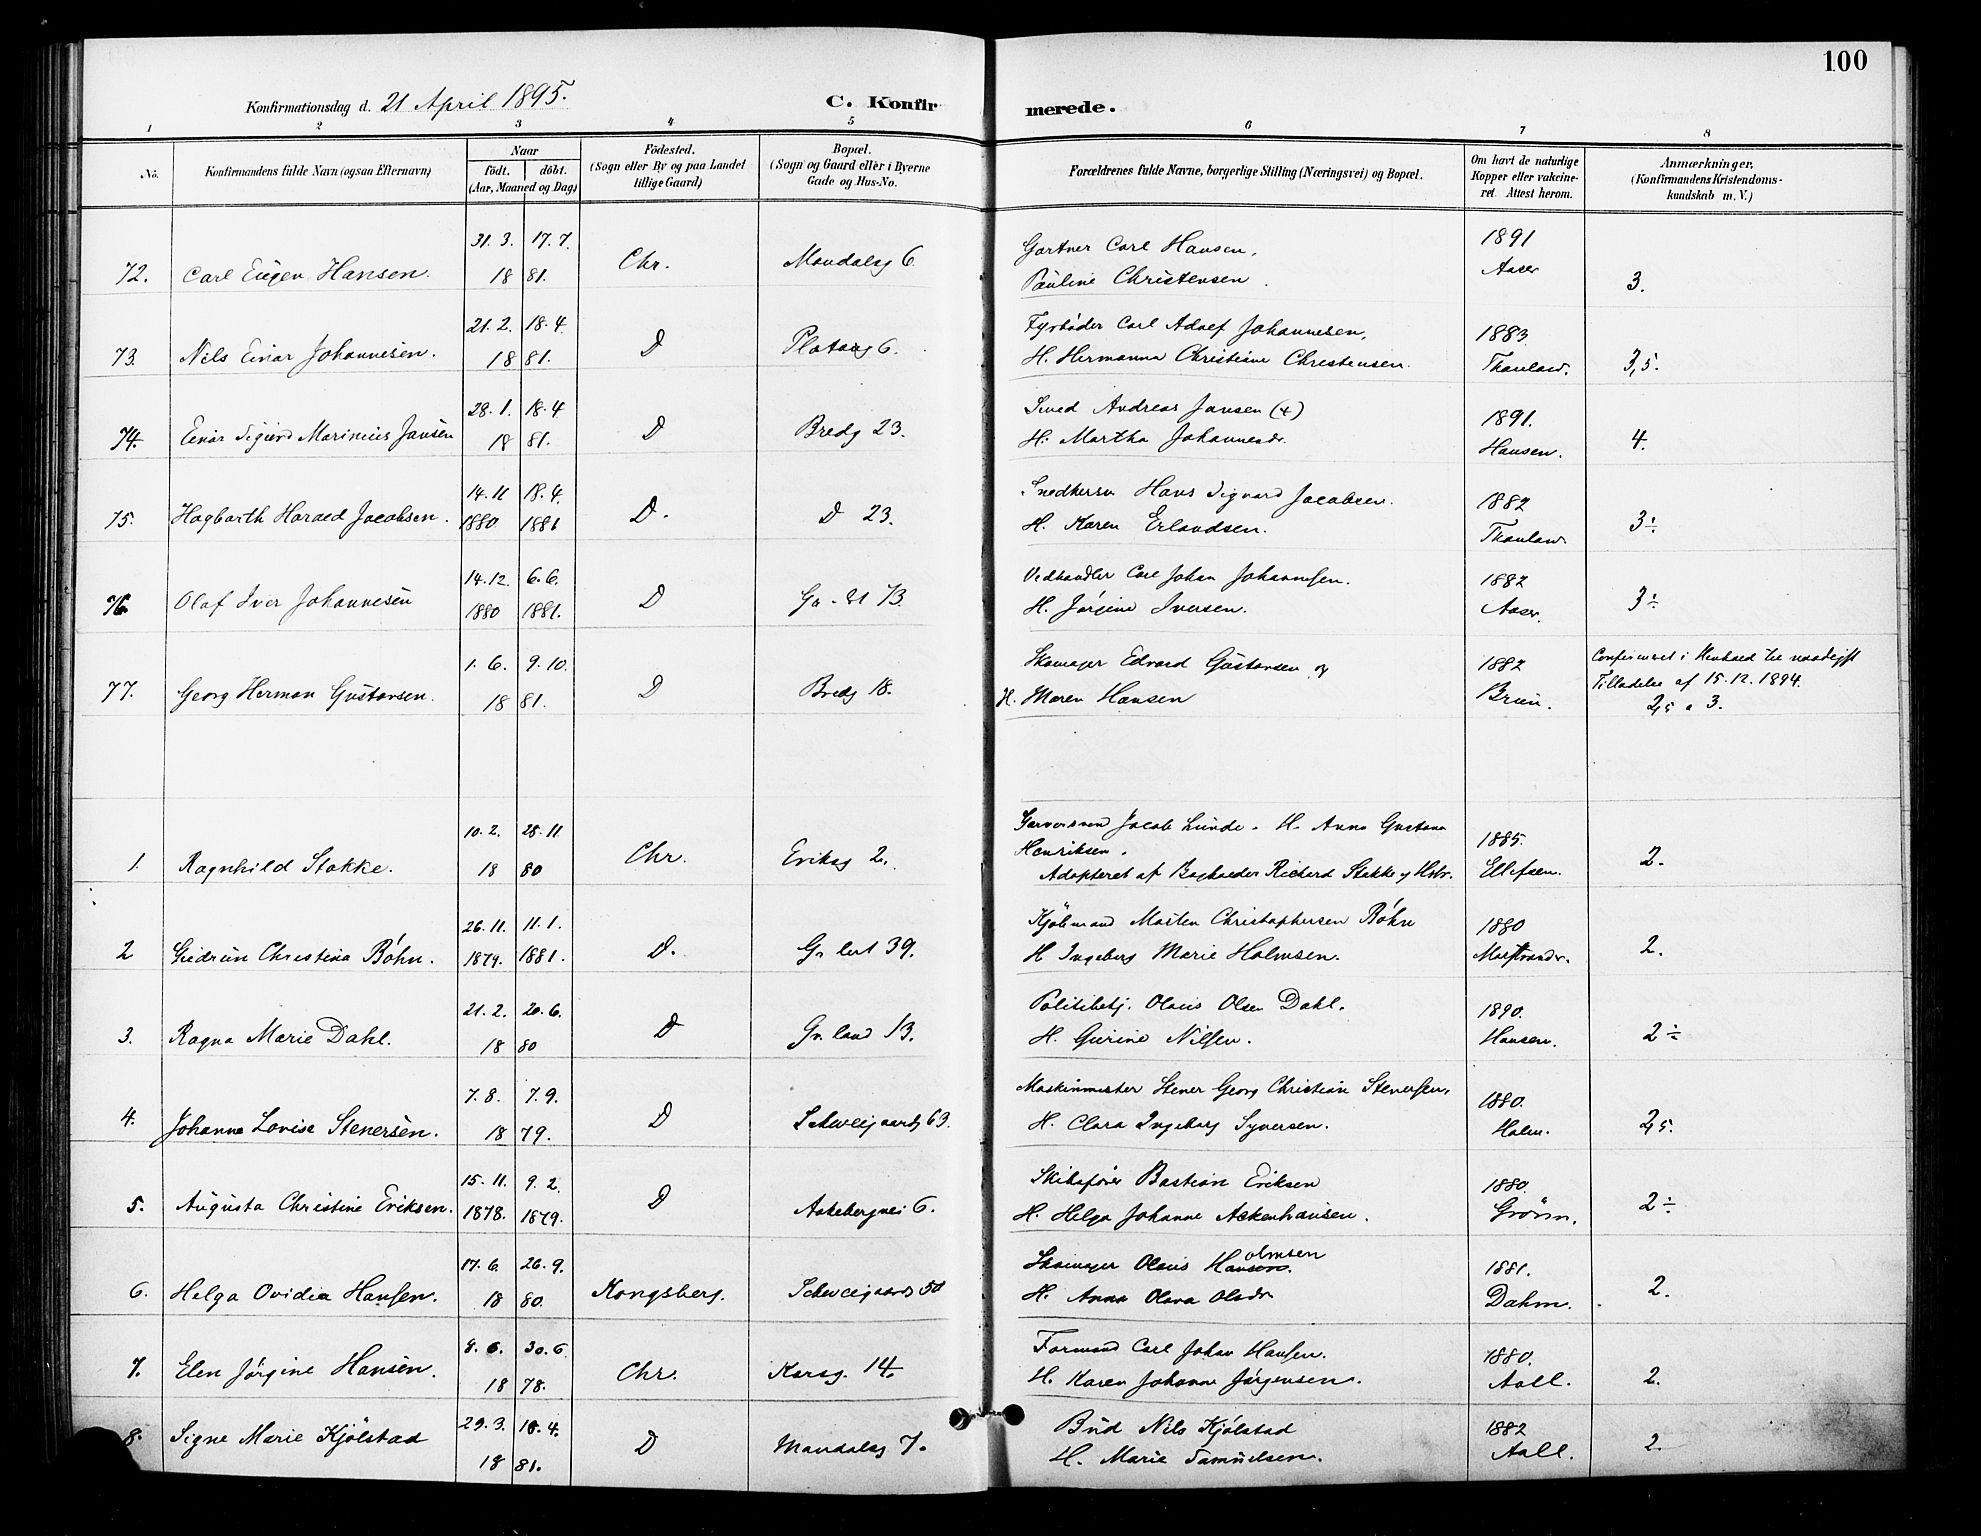 100
Konfirmationsdag d. 21 April 1895.
C. Konfirmerede.
1 2 3 4 5 6 7 8
No.
Konfirmandens fulde Navn (ogsaa Efternavn)
Naar
født. døbt.
(Aar, Maaned og Dag)
Fødested.
(Sogn eller By og paa Landet
tillige Gaard)
Bopæl.
(Sogn og Gaard eller i Byerne
Gade og Hus-No.
Forældrenes fulde Navne, borgerlige Stilling (Næringsvei) og Bopæl.
Om havt de naturlige
Kopper eller vakcine-
ret. Attest herom.
Anmærkninger.
(Konfirmandens Kristendoms-
kundskab m. V.)
31. 3. 17. 7. Gartner Carl Hansen, 1891
72. Carl Eugen Hansen. 18 81. Chr. Mandalsg 6. Pauline Christensen. Aaser 3.
21. 2. 18. 4. Fyrbøder Carl Adolf Johannesen, 1883.
73. Nils Einar Johannesen. 18 81. D Platoug 6. H. Hermanna Christiane Christensen. Thaulow. 3,5.
28. 1. 18. 4 Smed Andreas Jansen (+) 1891.
74. Einar Sigurd Marinius Jansen 18 81. D Bredg 23. H. Martha Johannesdr. Hansen. 4.
14. 11 18. 4. Snedkersv Hans Sigvard Jacobsen. 1882
75. Hagbarth Harald Jacobsen. 1880 1881 D. D 23. H. Karen Erlandsen. Thaulow 3÷
14. 12. 6. 6. Vedhandler Carl Johan Johannesen. 1882
76. Olaf Iver Johannesen 1880 1881. D Gr. 73. H. Jørgine Iversen. Aaser. 3÷
1. 6. 9. 10. Skomager Edvard Gustavsen og 1882 Confirmeret i Henhold til naadigst
77. Georg Herman Gustavsen. 18 81. D Bredg 18. H. Maren Hansen Bruun. Tilladelse af 15. 12. 1894.
2,5 a 3.
10. 2. 28. 11 Garversvend Jacob Lunde. H. Anna Gustava 1885.
Henriksen.
1. Ragnhild Stokke. 18 80 Chr. Eriksg 2. Adopteret af Bogholder Richard Stokke og Hstr. Ellefsen. 2.
26. 11. 11. 1. Kjøbmand Morten Christophersen Bøhn 1880
2 Gudrun Christina Bøhn. 1879. 1881. D. Gr. 39. H Ingeborg Marie Holmsen. Marstrander. 2.
21. 2. 20. 6. Politibetj. Olaus Olsen Dahl. 1890.
3. Ragna Marie Dahl. 18 80 D Grland 13. H. Gurine Nilsen. Hansen. 2÷
7. 8. 7. 9. Maskinmester Stener Georg Christian Stenersen, 1880.
4. Johanna Lovise Stenersen. 18 79. D Schweigaardsg 63. H. Clara Ingeborg Syversen. Holm. 2,5.
15. 11. 9. 2. Skibsfører Bastian Eriksen 1880.
5. Augusta Christine Eriksen. 1878. 1879. D Aakebergvei 6. H. Helga Johanne Ackenhausen. Grønn. 2÷
17. 6. 26. 9. Skomager Olaus Hansen olmsen 1881.
6. Helga Ovidia Hansen. 18 80. Kongsberg. Schweigaards 50 H. Anna Olava Olsdr Dahm. 2.
8. 6. 30. 6. Formand Carl Johan Hansen. 1880.
7. Elen Jørgine Hansen. 18 78. Chr. Korsg. 14. H. Karen Johanne Jørgensen. Aall. 2.
29. 3. 18. 4. Bud Nils Kjølstad 1882
8. Signe Marie Kjølstad 18 81. D Mandalsg 7. H. Marie Samuelsen. Aall. 2.